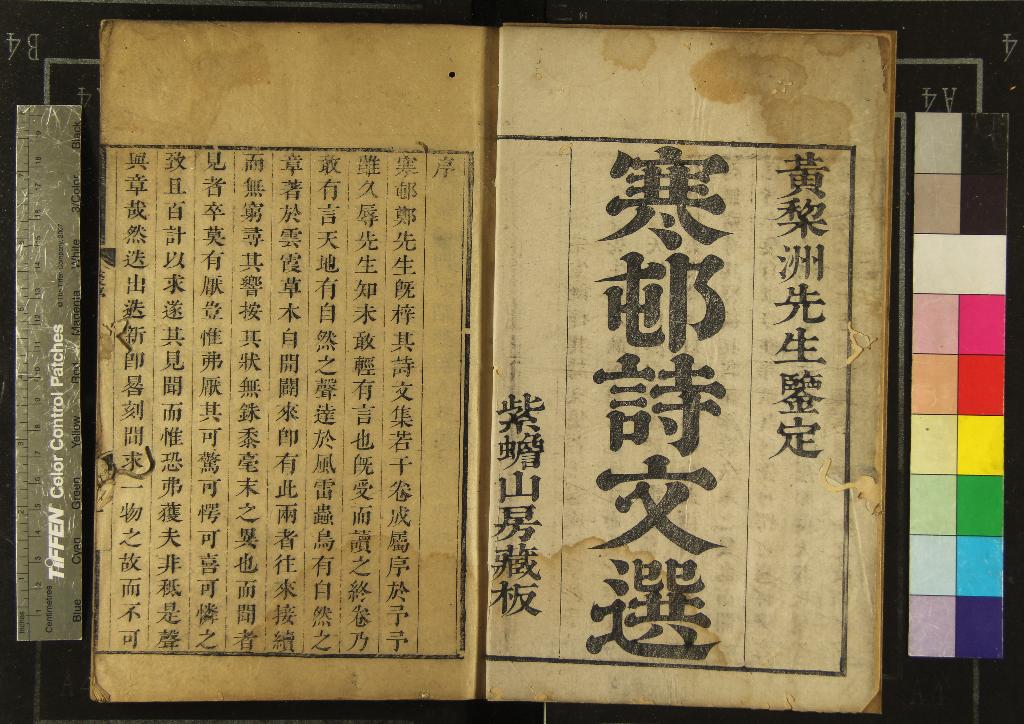 黃黎洲先生鑒定
寒邨詩文選
紫蟾山房藏板
序
寒邨鄭先生旣梓其詩文集若干卷成屬序於予予
雖久辱先生知未敢輕有言也旣受而讀之終卷乃
敢有言天地有自然之聲達於風雷蟲鳥有自然之
章著於雲霞草木自開闢來卽有此兩者往來接續
而無窮尋其響按其狀無銖黍毫末之異也而聞者
見者卒莫有厭豈惟弗厭其可驚可愕可喜可憐之
致且百計以求遂其見聞而惟恐弗獲夫非秖是聲
與章哉然迭出迭新卽晷刻間求一物之故而不可
TIFFEN Color Control Patches
© The Tiffen Company, 2007
Inches
Centimetres
Blue
Cyan
Green
Yellow
Red
Magenta
White
3/Color
Black
B4
A4
A4
4